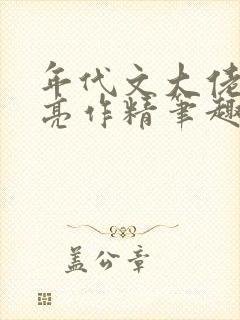 年代文大佬
亮作精笔趣
盖公章